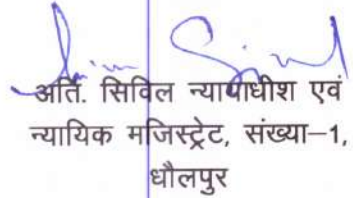 अति. सिविल न्यायाधीश एवं
न्यायिक मजिस्ट्रेट, संख्या–1,
धौलपुर